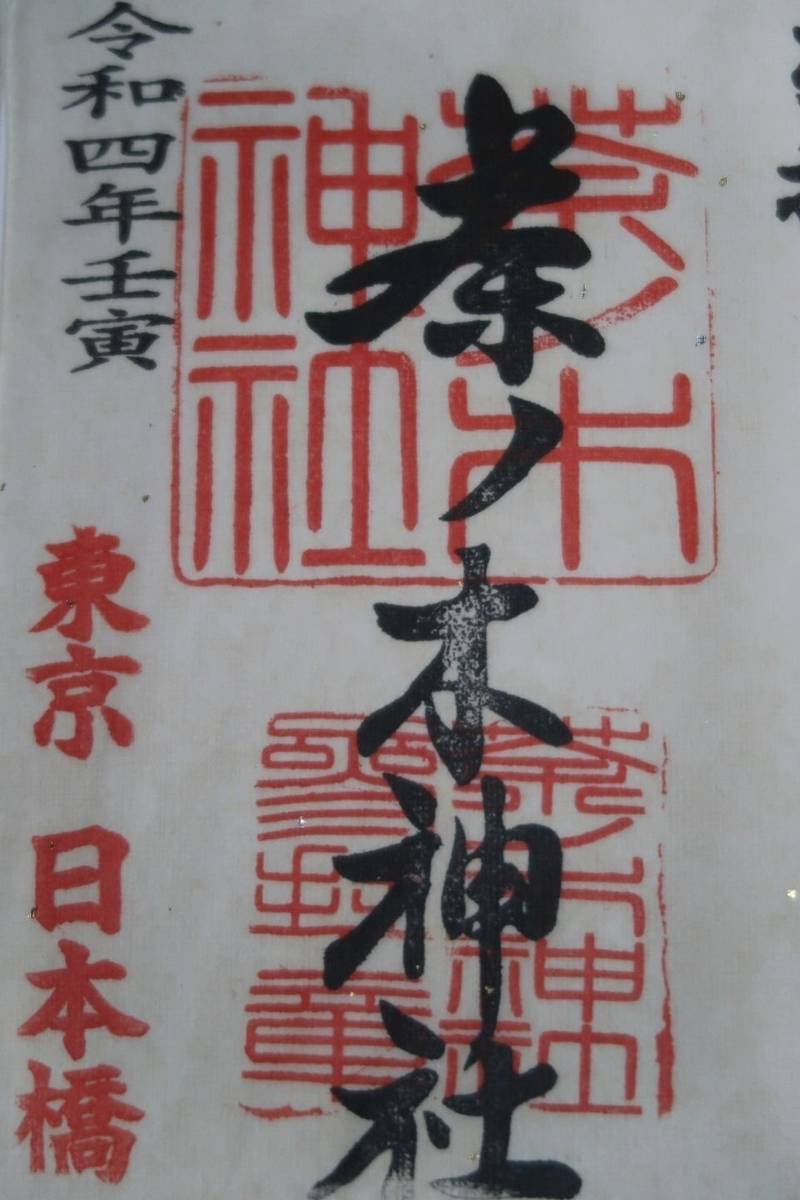 茶ノ木神社
茶ノ木
神社
茶ノ木神社
參拜章
令和四年壬寅
東京 日本橋